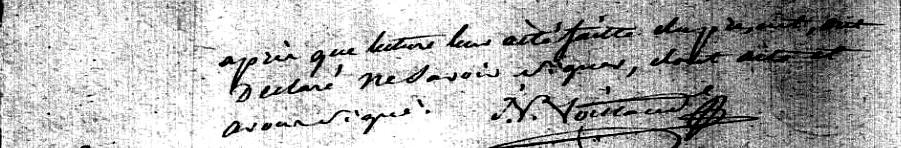 après que lecture leur a été faitte du présent, ont
Déclaré ne Savoir Signer, dont acte et
avons Signé. J. V. Toussaint